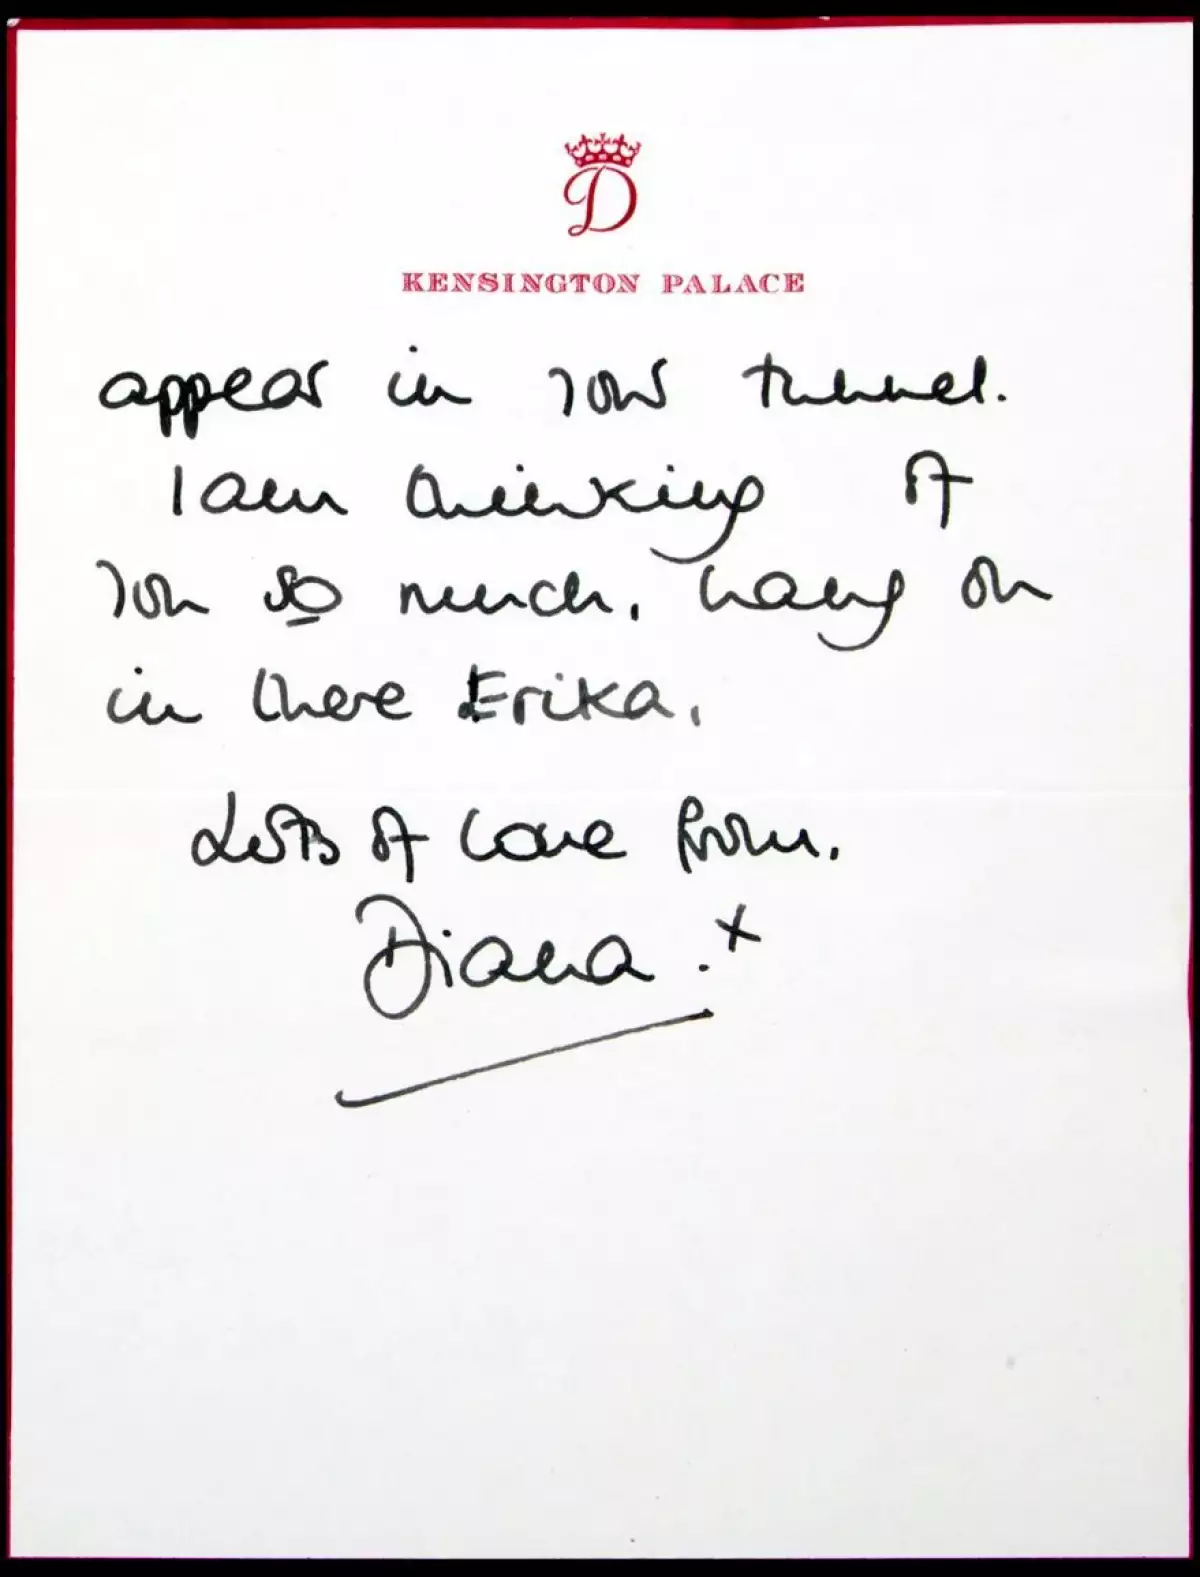 D
KENSINGTON PALACE
appear in your tunnel.
I am thinking of
you so much, hang on
in there Erika,
Lots of love from.
Diana . x